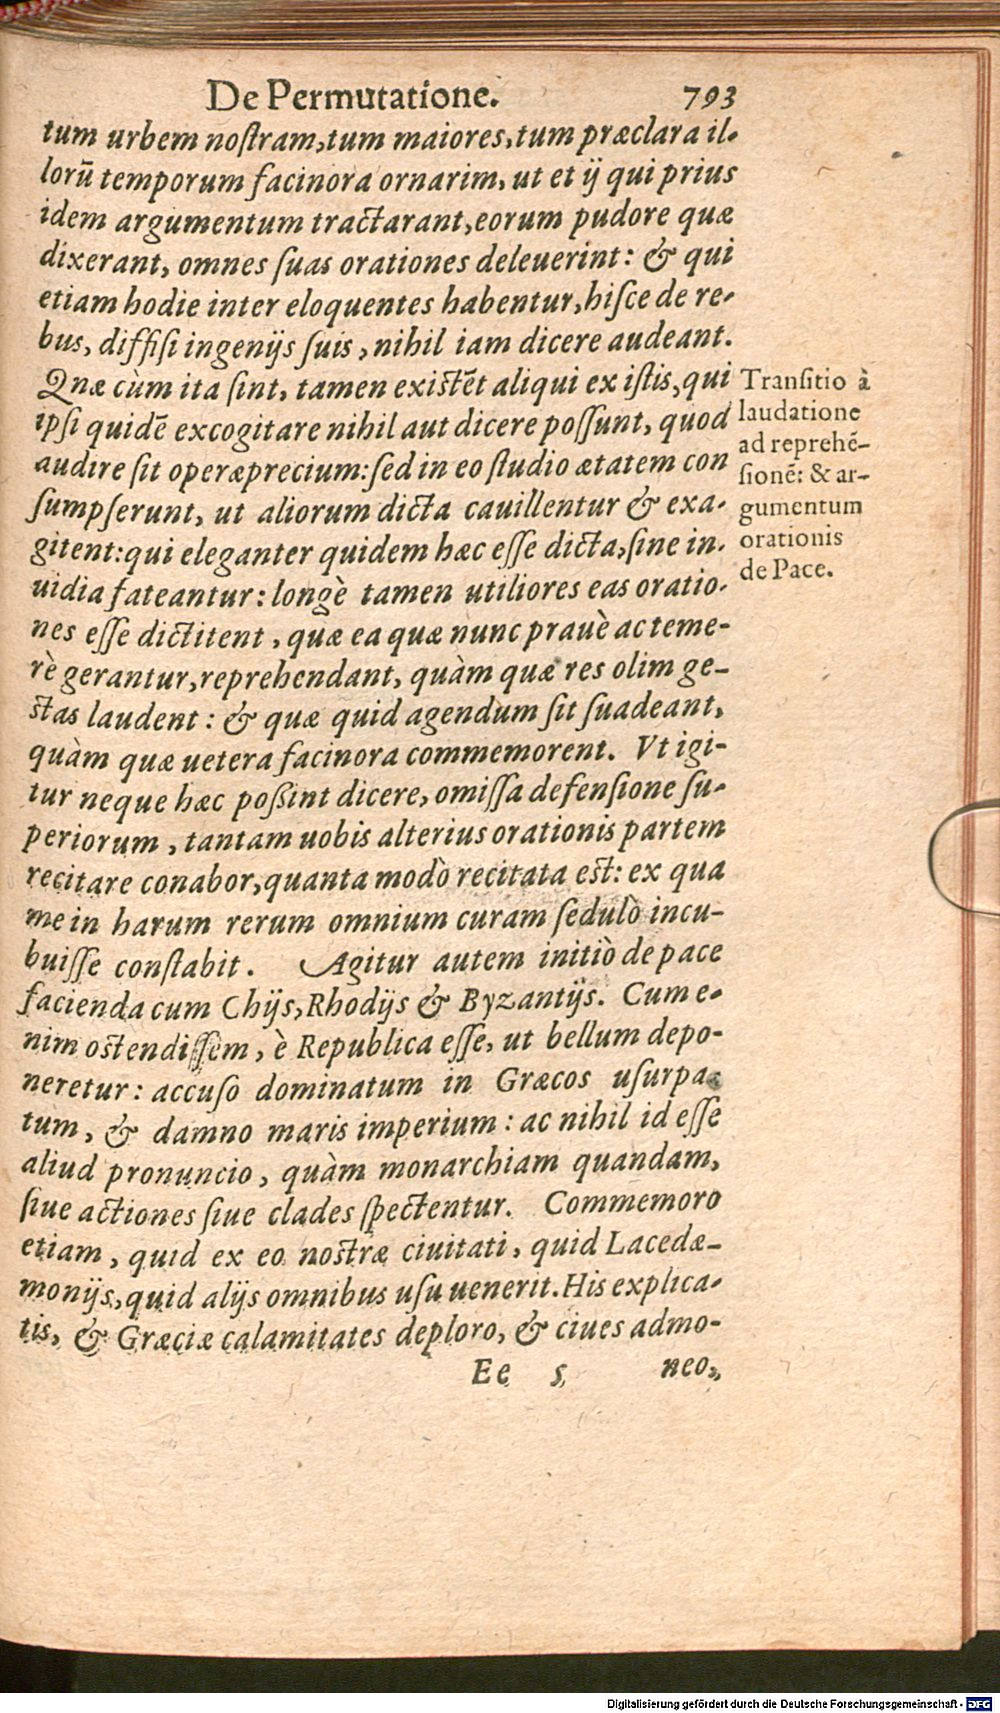 De Permutatione. 793
tum urbem nostram, tum maiores, tum præclara il-
lorũ temporum facinora ornarim, ut et ij qui prius
idem argumentum tractarant, eorum pudore quæ
dixerant, omnes suas orationes deleuerint: & qui
etiam hodie inter eloquentes habentur, hisce de re-
bus, diffisi ingenijs suis, nihil iam dicere audeant.
Quæ cùm ita sint, tamen existẽt aliqui ex istis, qui
ipsi quidẽ excogitare nihil aut dicere possunt, quod
audire sit operæprecium: sed in eo studio ætatem con
sumpserunt, ut aliorum dicta cauillentur & exa-
gitent: qui eleganter quidem hæc esse dicta, sine in-
uidia fateantur: longè tamen utiliores eas oratio-
nes esse dictitent, quæ ea quæ nunc prauè ac teme-
rè gerantur, reprehendant, quàm quæ res olim ge-
stas laudent: & quæ quid agendum sit suadeant,
quàm quæ uetera facinora commemorent. Vt igi-
tur neque hæc possint dicere, omissa defensione su-
periorum, tantam uobis alterius orationis partem
recitare conabor, quanta modò recitata est: ex qua
me in harum rerum omnium curam sedulò incu-
buisse constabit. Agitur autem initiò de pace
facienda cum Chijs, Rhodijs & Byzantijs. Cum e-
nim ostendissem, è Republica esse, ut bellum depo-
neretur: accuso dominatum in Græcos usurpa-
tum, & damno maris imperium: ac nihil id esse
aliud pronuncio, quàm monarchiam quandam,
siue actiones siue clades spectentur. Commemoro
etiam, quid ex eo nostræ ciuitati, quid Lacedæ-
monijs, quid alijs omnibus usu uenerit. His explica-
tis, & Græciæ calamitates deploro, & ciues admo-
Ee 5 neo,
Transitio à
laudatione
ad reprehẽ-
sionẽ: & ar-
gumentum
orationis
de Pace.
Digitalisierung gefördert durch die Deutsche Forschungsgemeinschaft - DFG